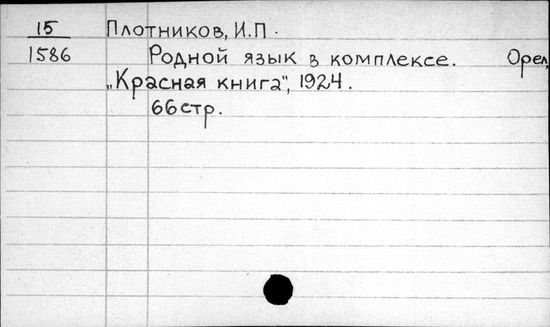 15 Плотников, И.П.
1586 Родной язык в комплексе. Орел,
„Красная книга", 1924.
66 стр.